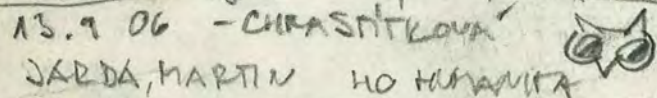 13.9 06 - CHRASTÍTKOVÁ
JARDA, MARTIN HO HUMANITA